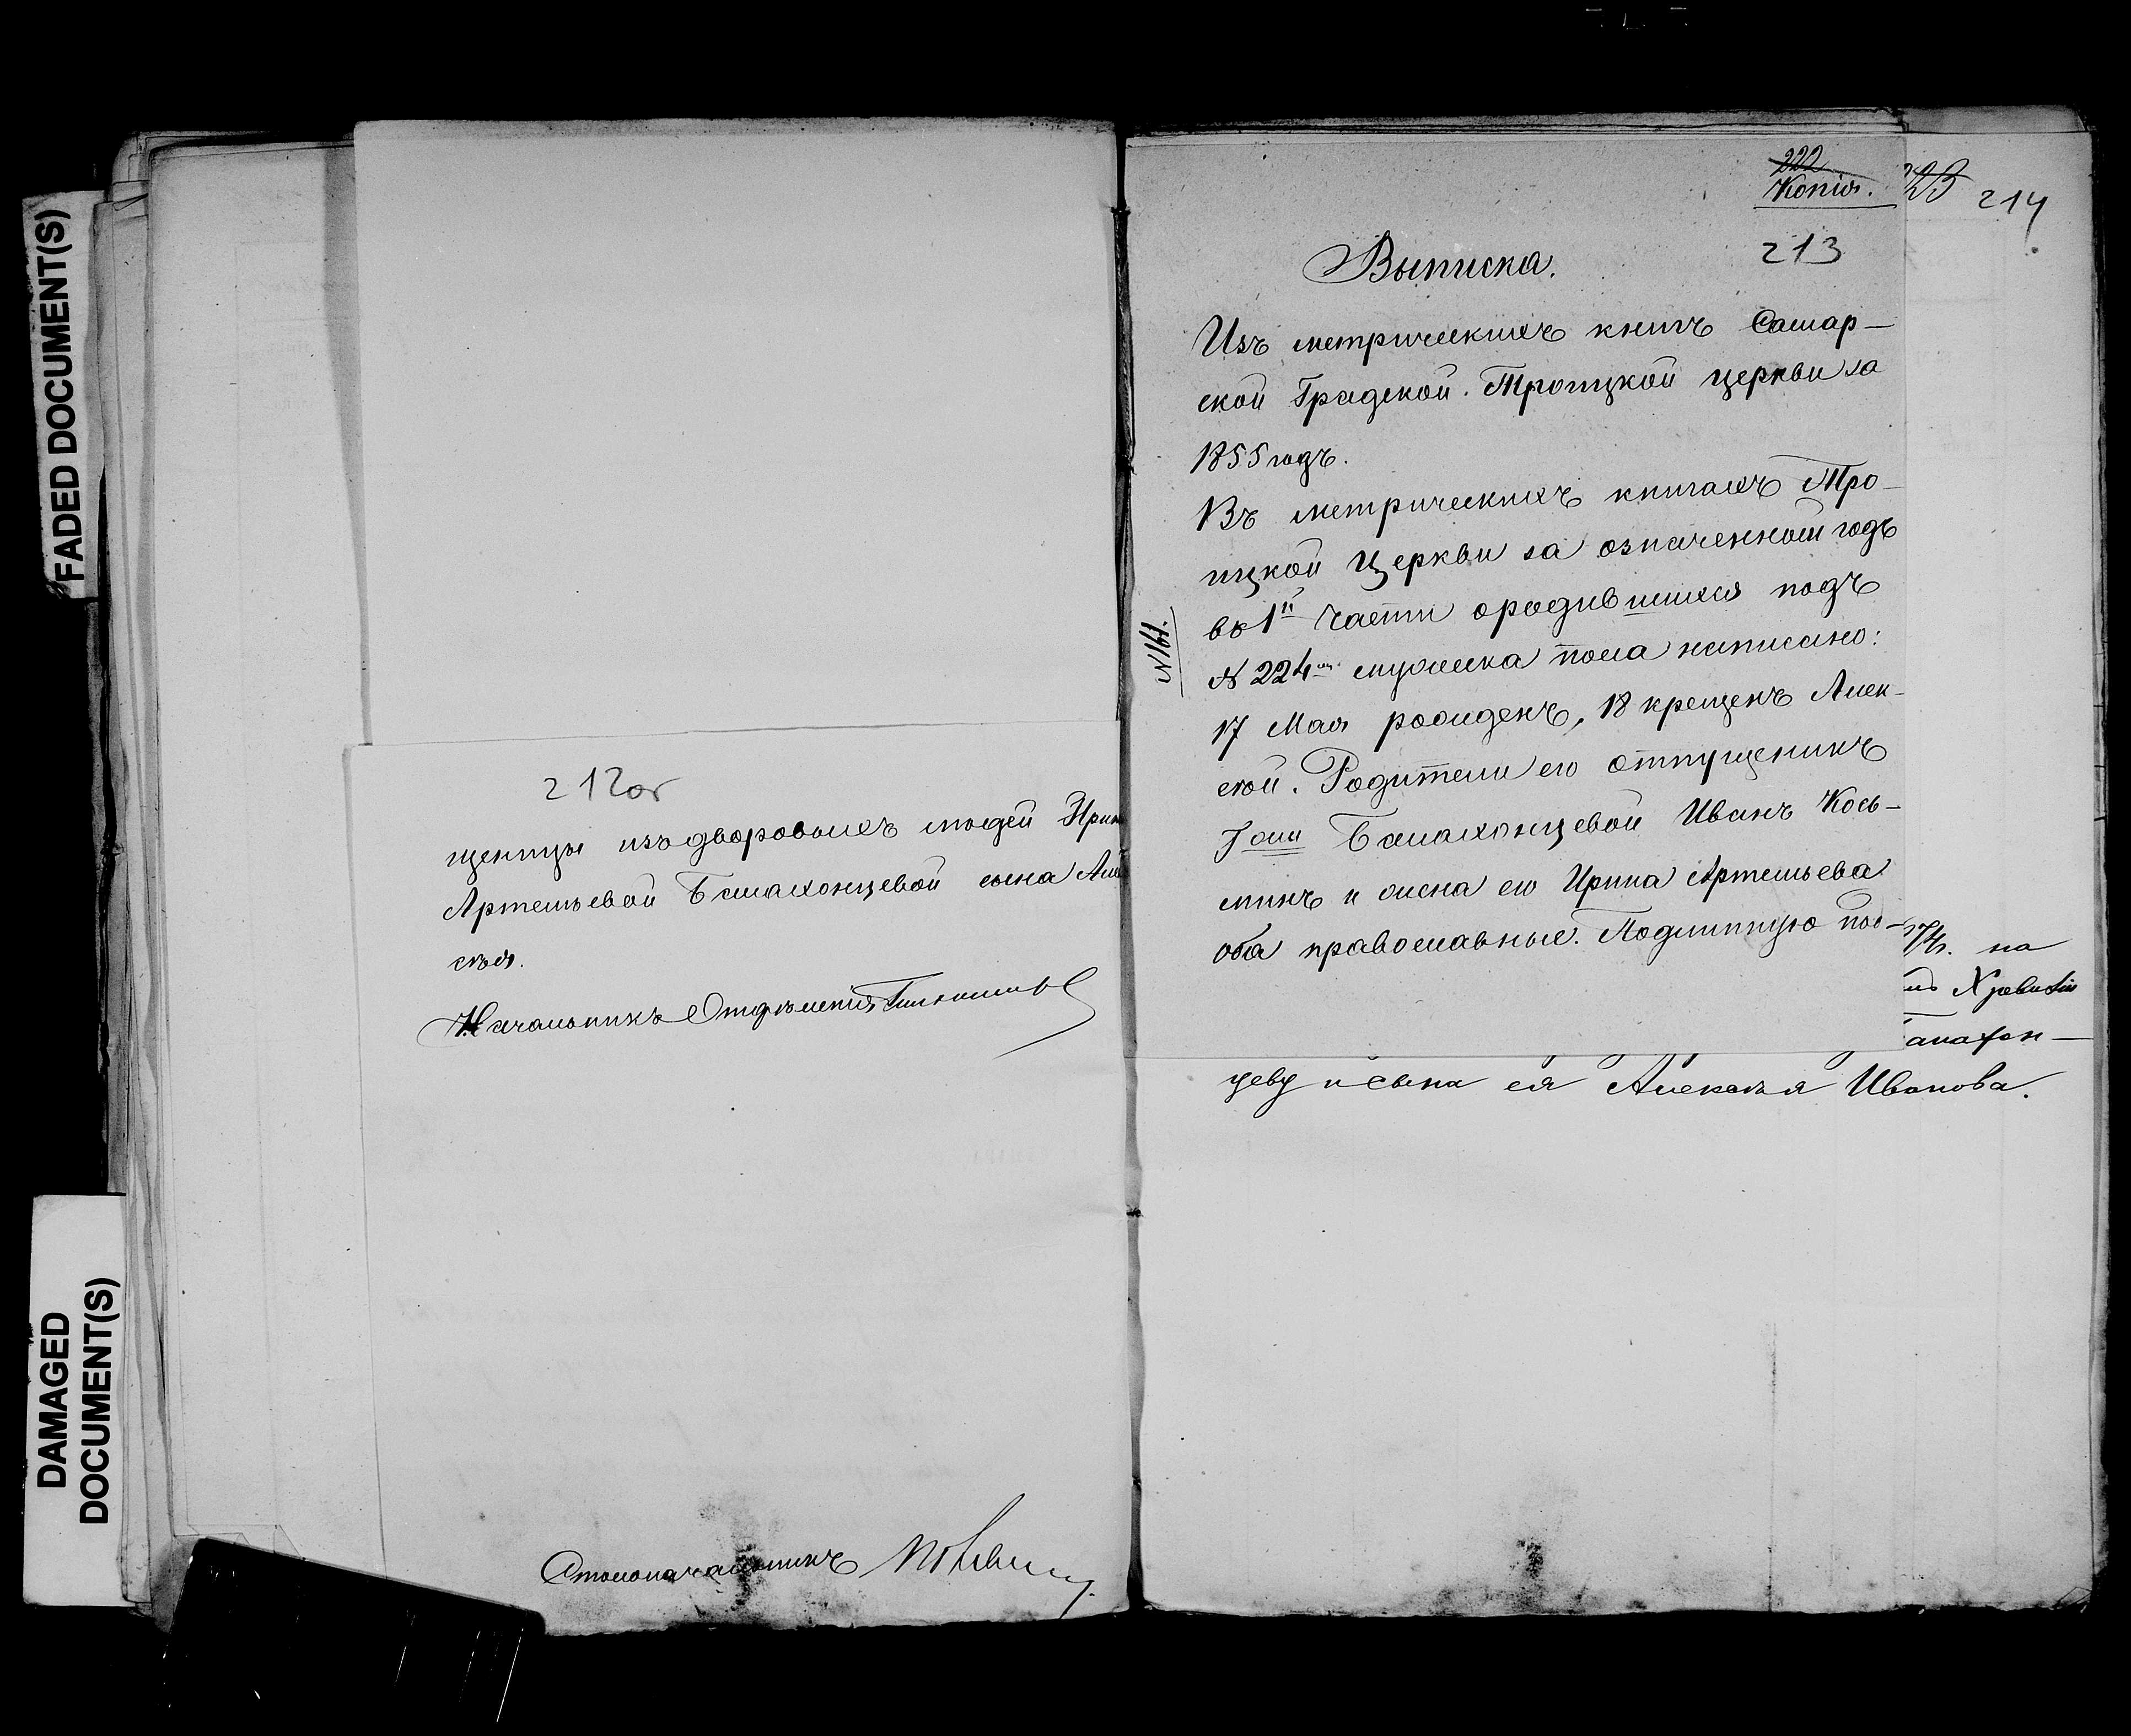 FADED DOCUMENT(S)
DAMAGED
DOCUMENT(S)
212об
щенцы изъ дворовыхъ людей Ирин
Артемьевой Балахонцевой сына Але
ксѣя.
Начальникъ Отдѣленія
Столоначальникъ
222
Копія.
213
Выписка.
Изъ метрическихъ книгъ Самар-
ской Градской Троицкой церкви за
1855 годъ.
Въ метрическихъ книгахъ Тро-
ицкой Церкви за означенный годъ
въ 1й части о родившихся подъ
№ 224мъ мужеска пола написано:
17 Мая рожденъ, 18 крещенъ Алек-
сѣй. Родители его отпущеникъ
Гжи Балахонцевой Иванъ Козь-
минъ и жена его Ирина Артемьева
оба православные. Подлинную под-
№ 161.
223 214
на
ахон-
цеву и сына ея Алексѣя Иванова.